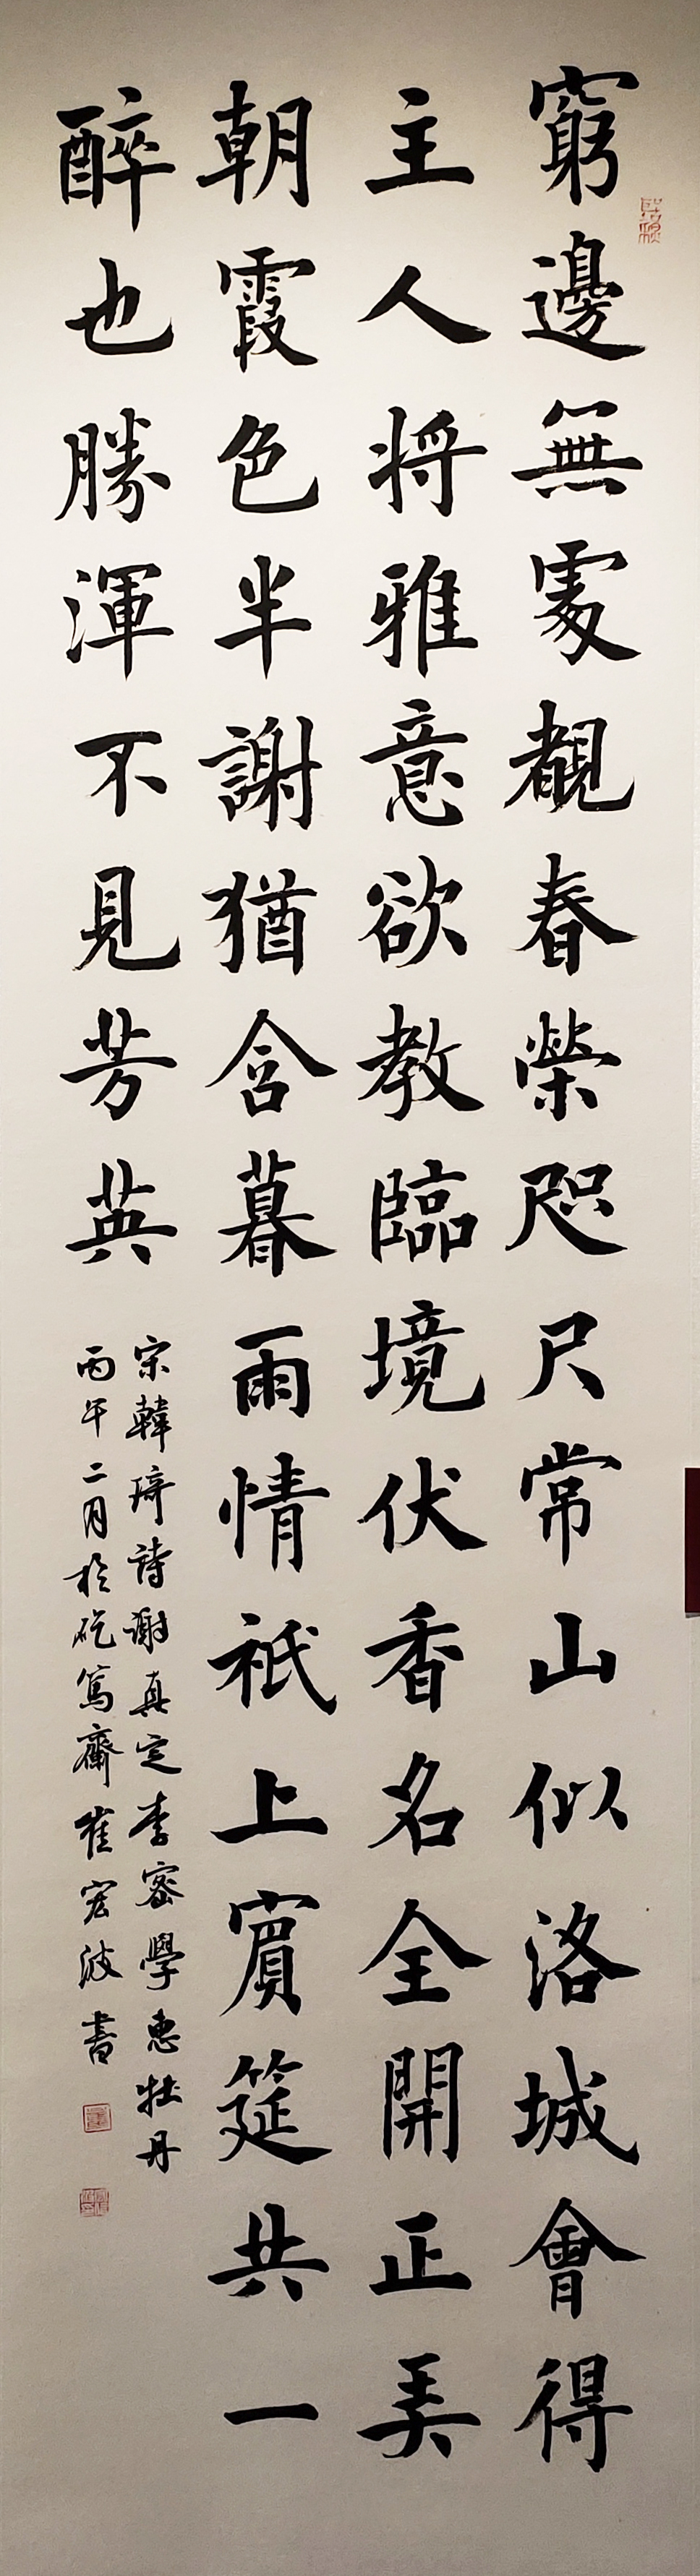 窮邊無處覩春榮咫尺常山似洛城會得
主人将雅意欲教臨境伏香名全開正美
朝霞色半謝猶含暮雨情祇上賓筵共一
醉也勝渾不見芳英
宋韓琦詩謝真定李密學惠牡丹
丙午二月於砣篤齋崔宏波書